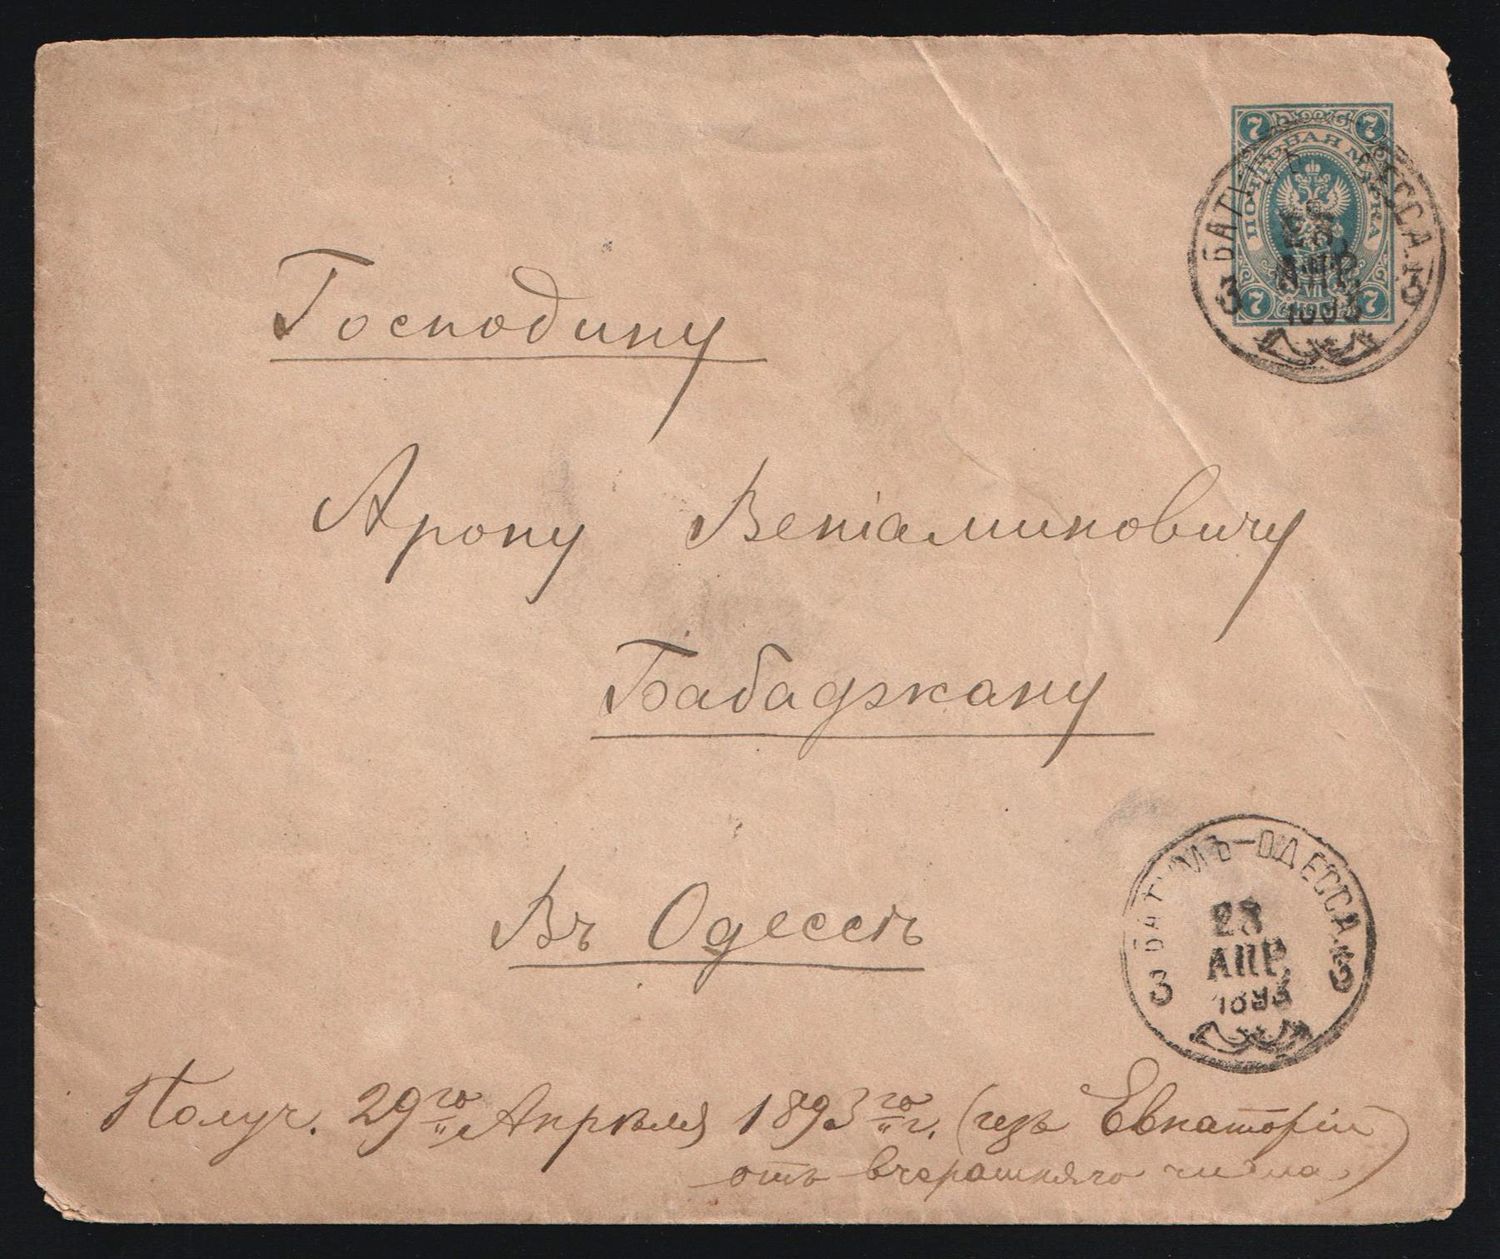 7 7
ПОЧТОВАЯ МАРКА
7 7
БАТУМЪ ОДЕССА.
28
АПР.
1893
3 3
Господину
Арону Веніаминовичу
Бабаджану
Въ Одессѣ
БАТУМЪ-ОДЕССА.
28
АПР.
1893
3 3
Получ. 29го Апрѣля 1893го г. (изъ Евпаторіи
отъ вчерашняго числа)